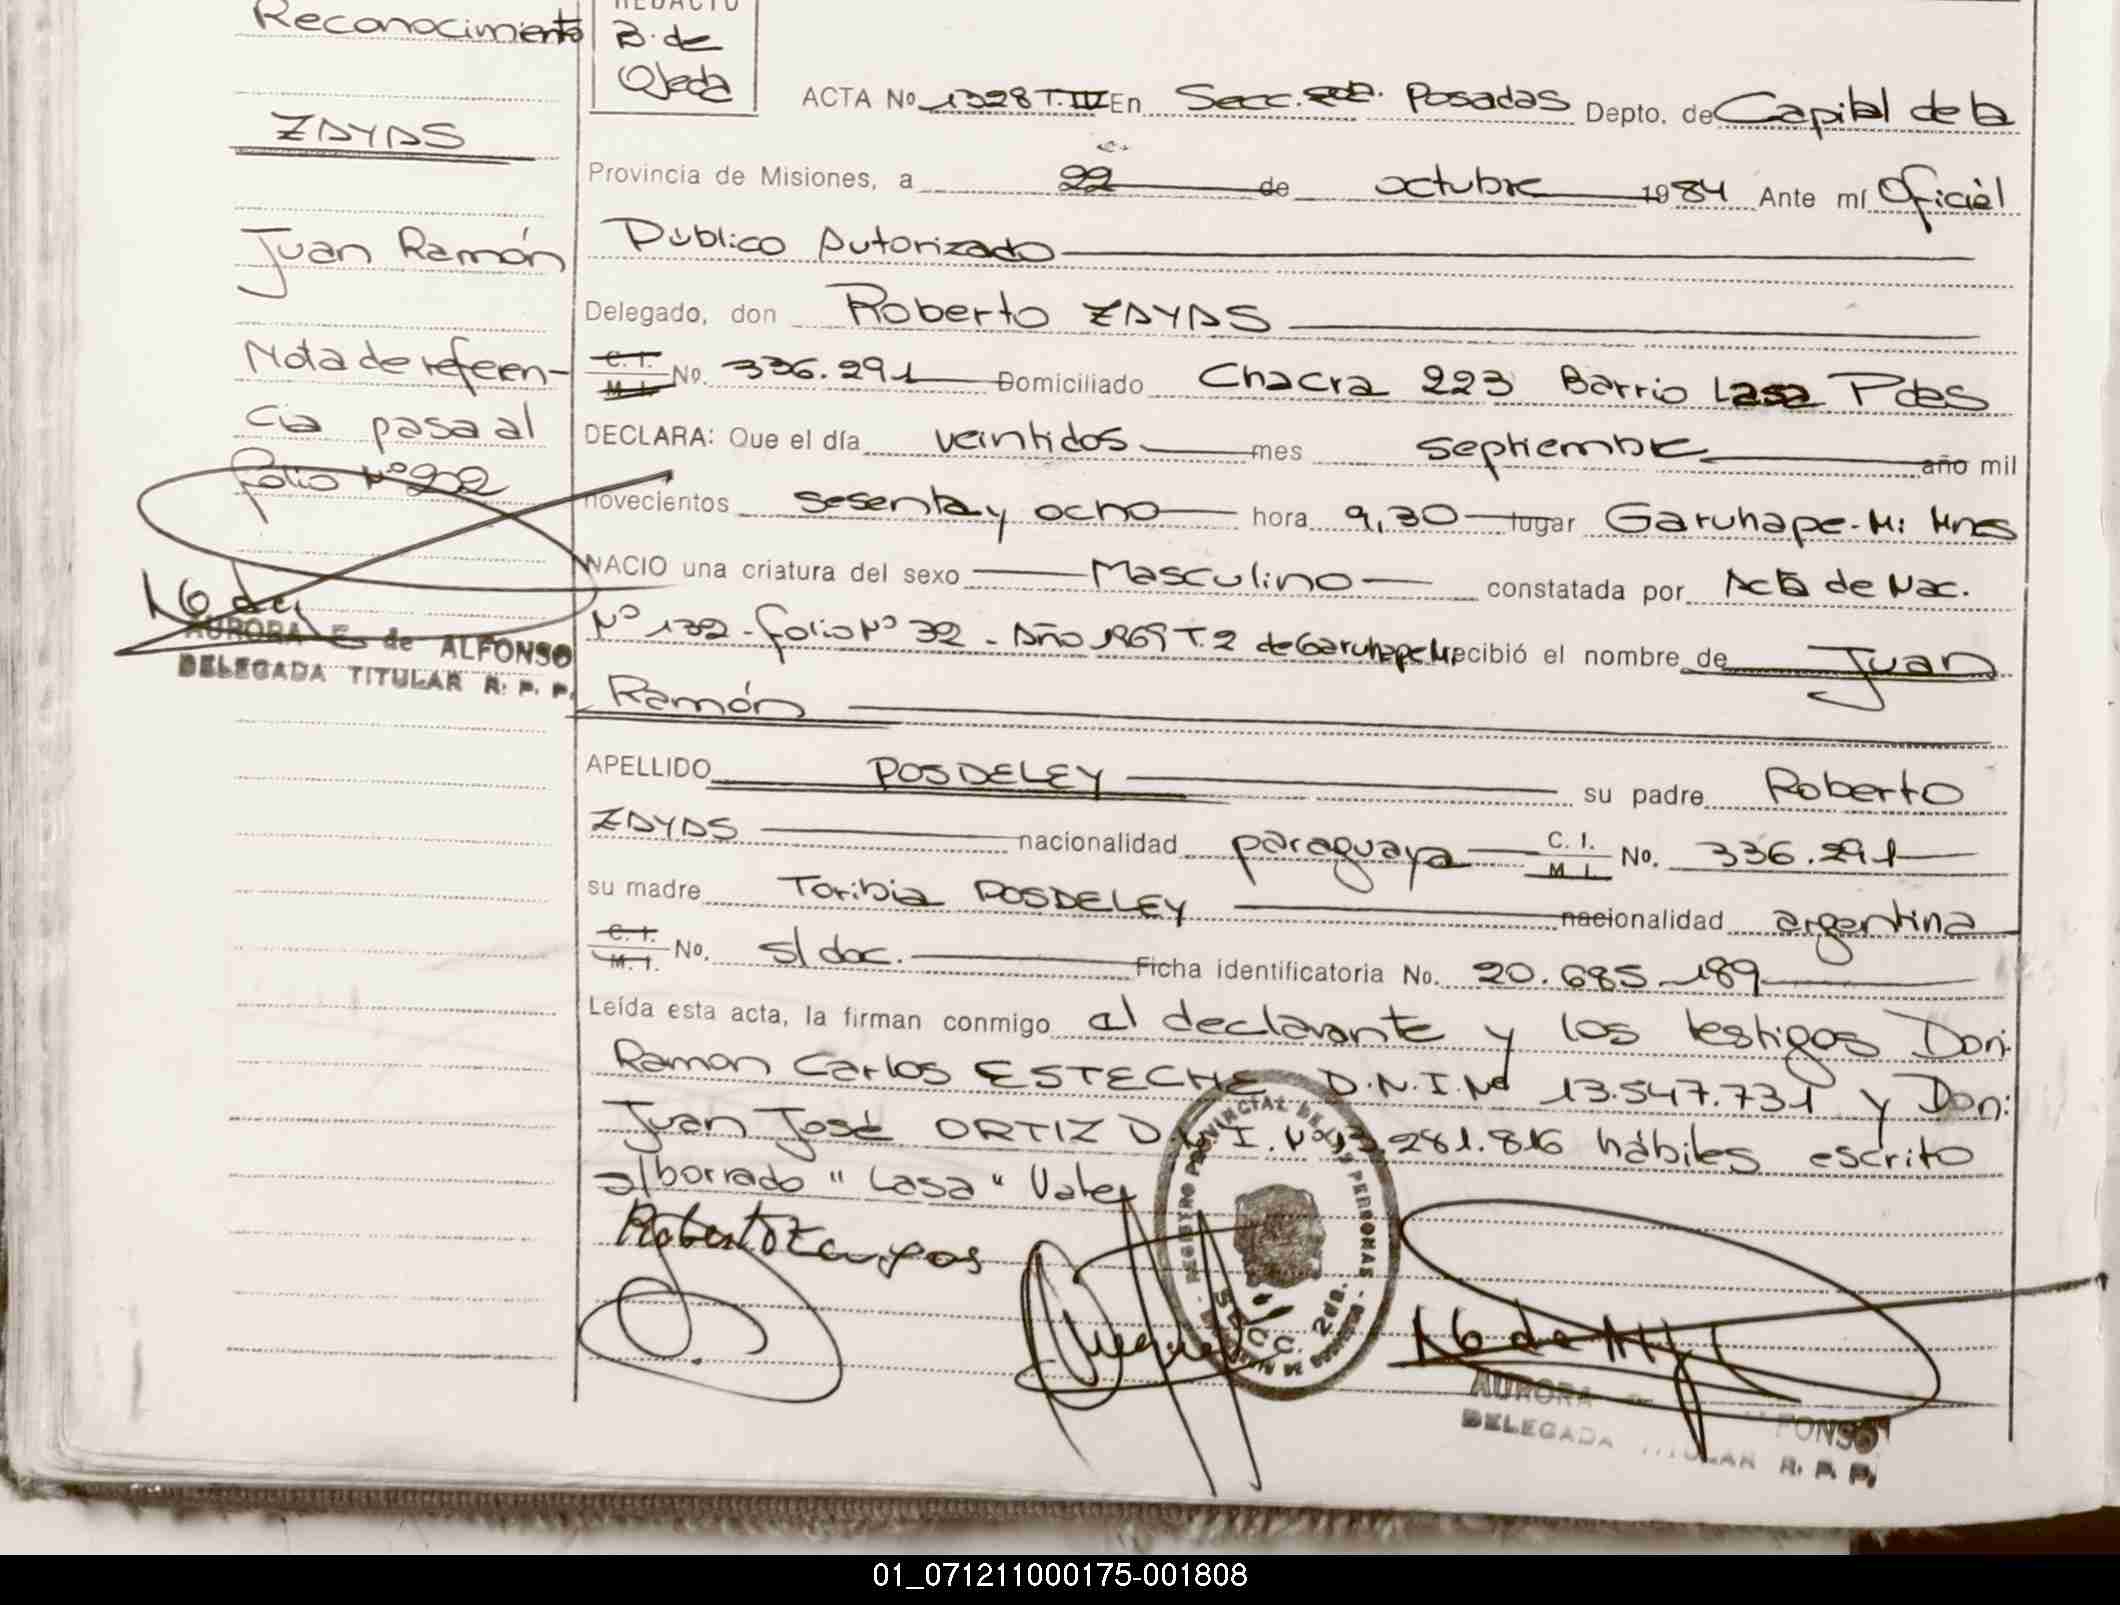 Reconocimiento
ZAYAS
Juan Ramón
Nota de refeen-
cia pasa al
folio Nº 202
AURORA E. de ALFONSO
DELEGADA TITULAR R. P. P.
REDACTO
B. de
Ojeda
ACTA No 1328 T.IV En Secc. 2da. Posadas Depto. de Capital de la
Provincia de Misiones, a 22 de octubre 1984 Ante mí Oficial
Público Autorizado
Delegado, don Roberto ZAYAS
C. I. M. I. No. 336.291 Domiciliado Chacra 223 Barrio Lasa Pdas
DECLARA: Que el día veintidos mes septiembre año mil
novecientos sesenta y ocho hora 9,30 lugar Garuhape-Mi Mnes
NACIO una criatura del sexo Masculino constatada por Acta de Nac.
Nº 132 - folio Nº 32 - Año 1969 T. 2 de Garuhape Mi recibió el nombre de Juan
Ramón
APELLIDO POSDELEY su padre Roberto
ZAYAS nacionalidad paraguaya C. I. M. I. No. 336.291
su madre Toribia POSDELEY nacionalidad argentina
C. I. M. I. No. s/doc. Ficha identificatoria No. 20.685.189
Leída esta acta, la firman conmigo el declarante y los testigos Don:
Ramon Carlos ESTECHE D.N.I. Nº 13.547.731 y Don:
Juan José ORTIZ D.N.I. Nº 13.281.816 hábiles escrito
s/borrado "Lasa" Vale
Roberto Zayas
REGISTRO PROVINCIAL DE LAS PERSONAS
SECC. 2da.
AURORA FONSO
DELEGADA TITULAR R. P. P.
01_071211000175-001808